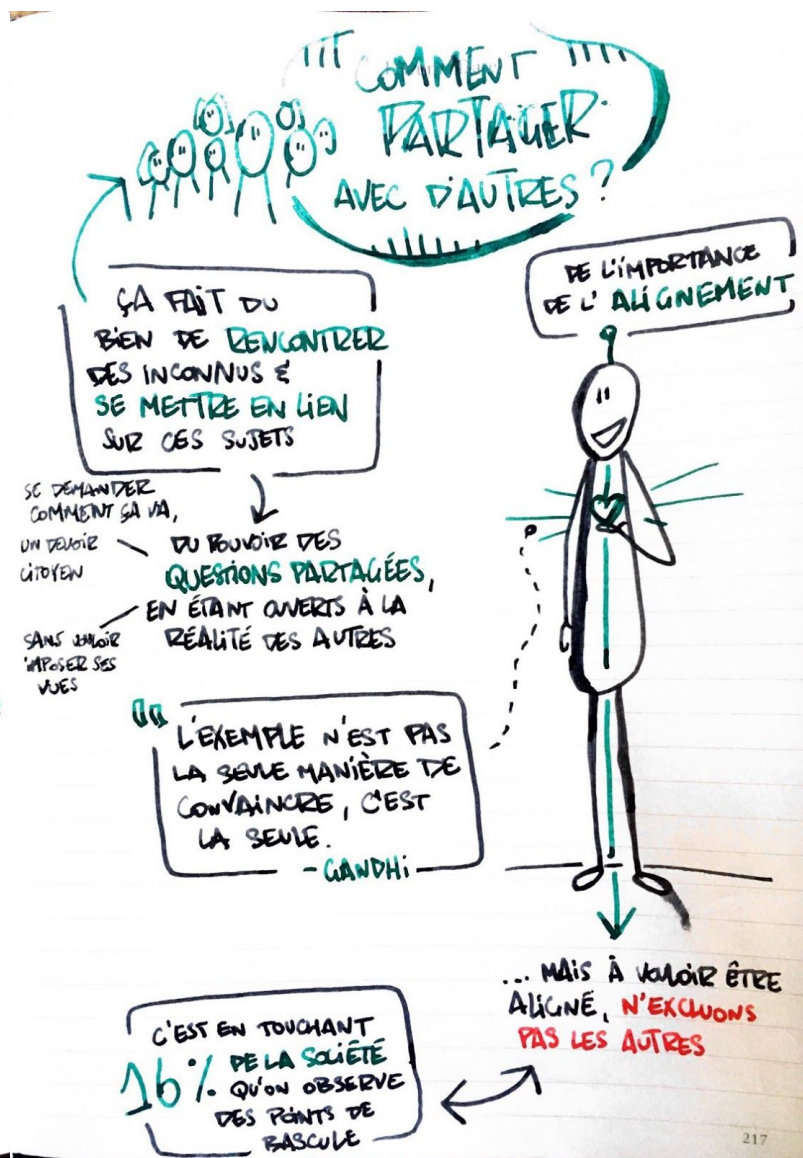 COMMENT
PARTAGER
AVEC D'AUTRES ?
ÇA FAIT DU
BIEN DE RENCONTRER
DES INCONNUS &
SE METTRE EN LIEN
SUR CES SUJETS
SE DEMANDER
COMMENT ÇA VA,
UN DEVOIR
CITOYEN
DU POUVOIR DES
QUESTIONS PARTAGÉES,
EN ÉTANT OUVERTS À LA
RÉALITÉ DES AUTRES
SANS VOULOIR
IMPOSER SES
VUES
"L'EXEMPLE N'EST PAS
LA SEULE MANIÈRE DE
CONVAINCRE, C'EST
LA SEULE.
- GANDHI
DE L'IMPORTANCE
DE L'ALIGNEMENT
... MAIS À VOULOIR ÊTRE
ALIGNÉ, N'EXCLUONS
PAS LES AUTRES
C'EST EN TOUCHANT
16% DE LA SOCIÉTÉ
QU'ON OBSERVE
DES POINTS DE
BASCULE
217